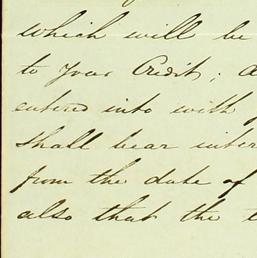 which will be
to your Credit; a
entered into with
shall bear inter
from the date of
also that the t